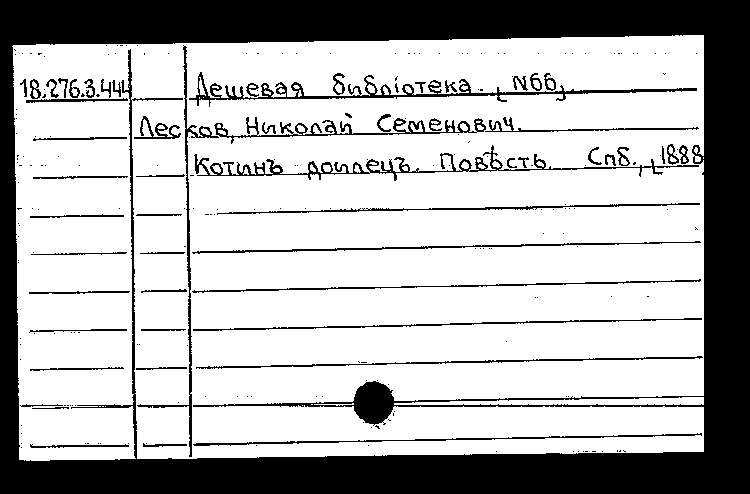 18.276.3.444 Дешевая библіотека. [№66].
Лесков, Николай Семенович.
Котинъ доилецъ. Повѣсть. Спб., [1888